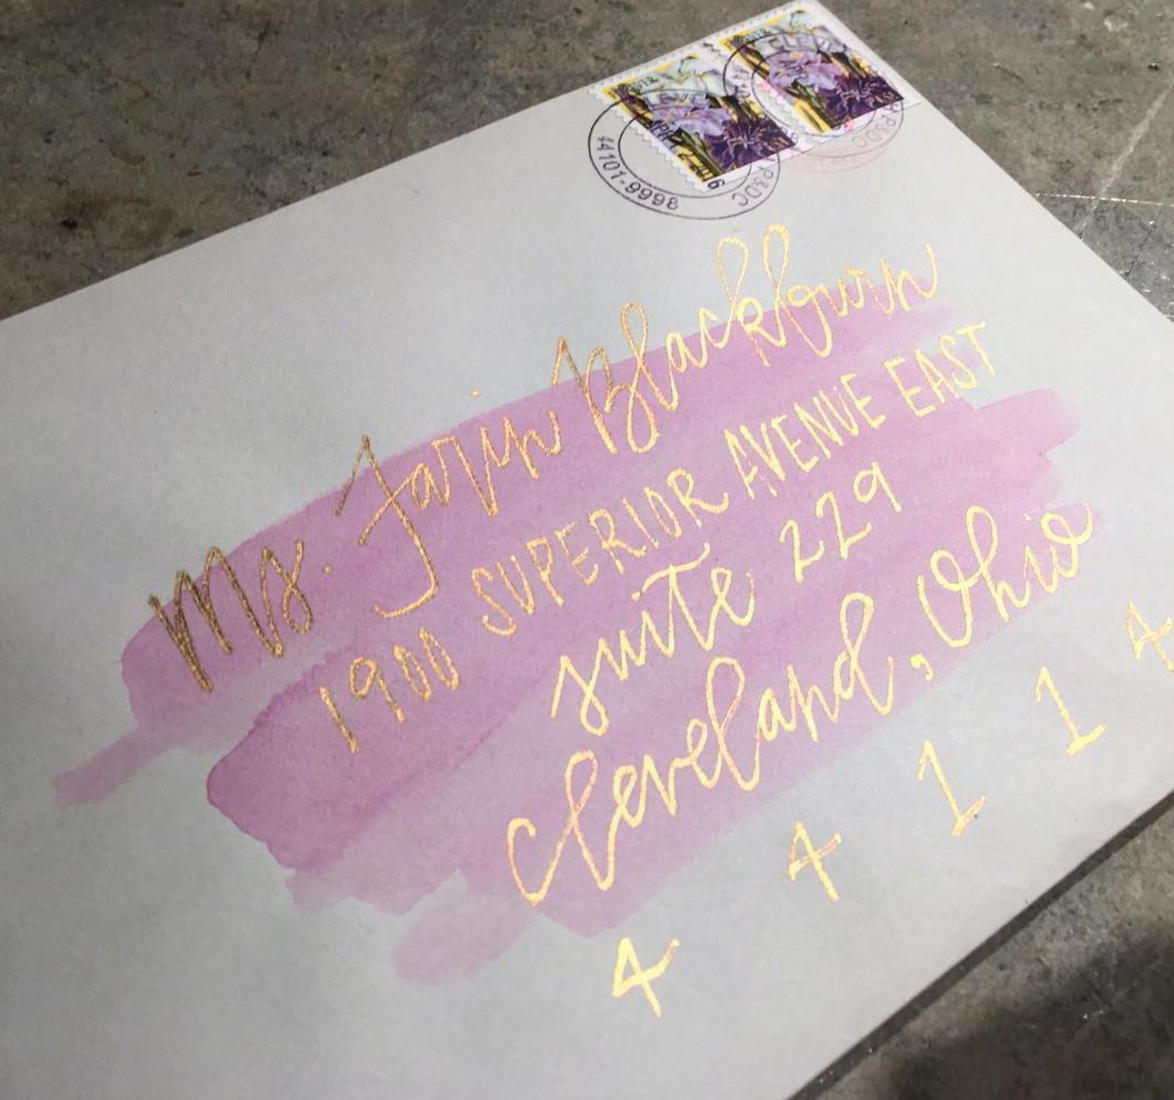 44101-9998
P&DC
P&DC
Ms. Jaryn Blackburn
1900 SUPERIOR AVENUE EAST
suite 229
Cleveland, Ohio
4 4 1 1 4